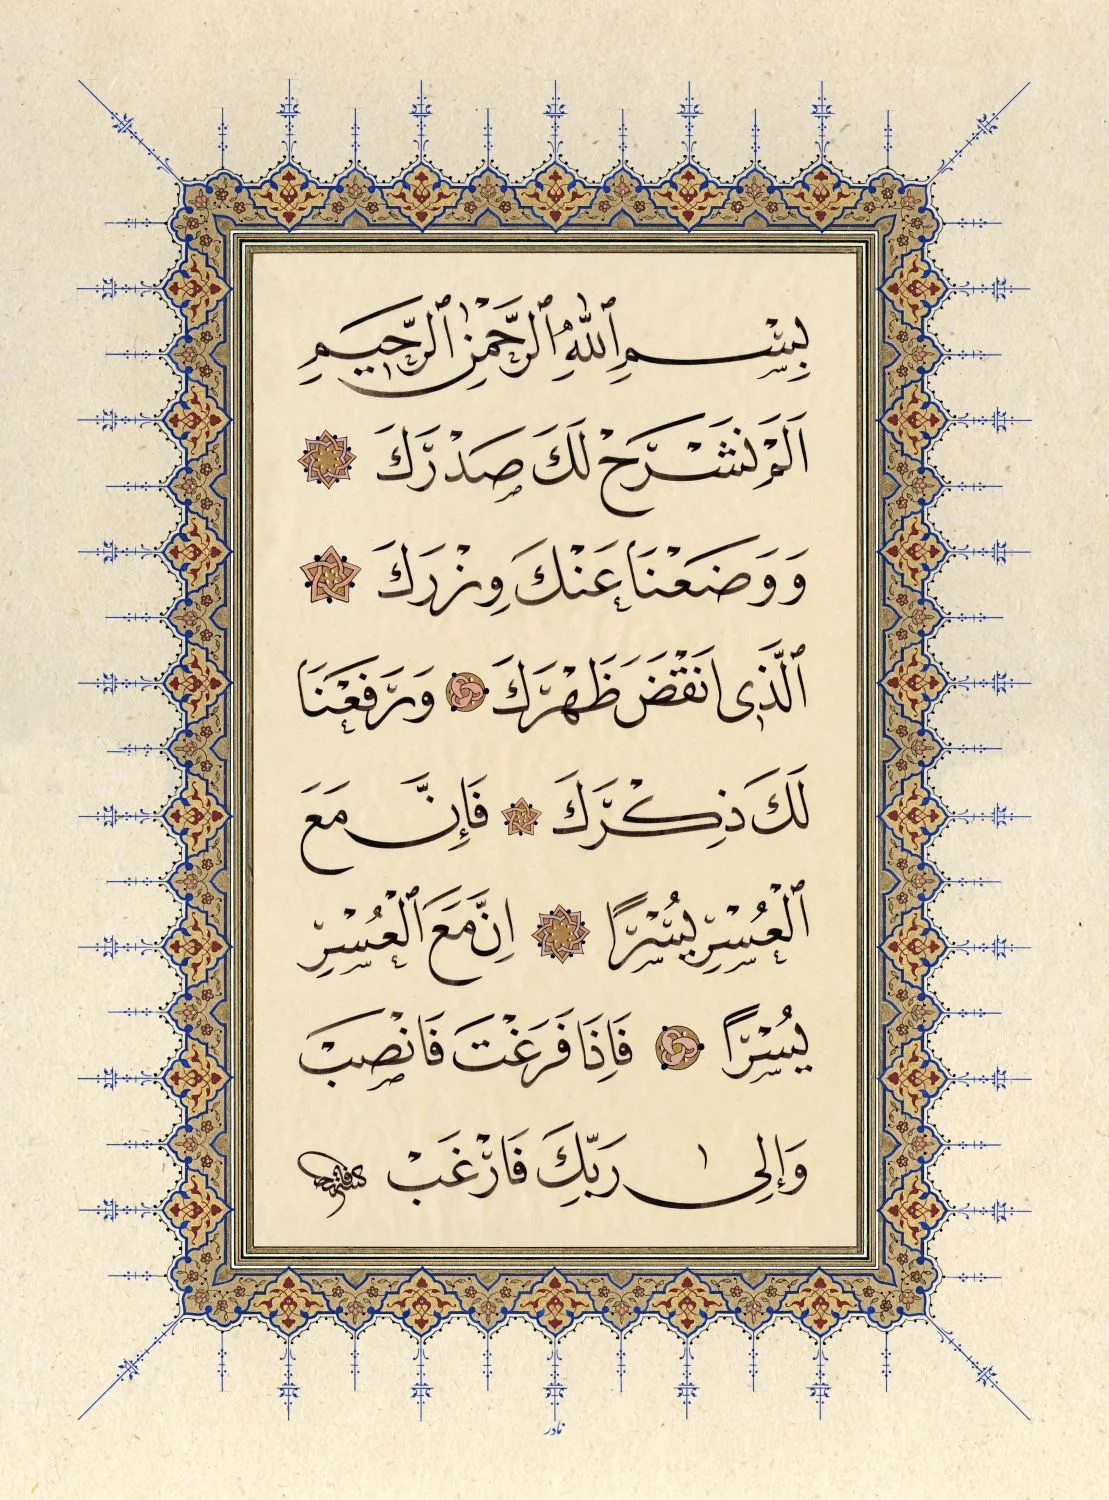 بِسْمِ ٱللّٰهِ ٱلرَّحْمٰنِ ٱلرَّحِيمِ
اَلَمْ نَشْرَحْ لَكَ صَدْرَكَ
وَوَضَعْنَا عَنْكَ وِزْرَكَ
ٱلَّذِى اَنْقَضَ ظَهْرَكَ وَرَفَعْنَا
لَكَ ذِكْرَكَ فَاِنَّ مَعَ
ٱلْعُسْرِ يُسْرًا اِنَّ مَعَ ٱلْعُسْرِ
يُسْرًا فَاِذَا فَرَغْتَ فَانْصَبْ
وَاِلٰى رَبِّكَ فَارْغَبْ
نادر